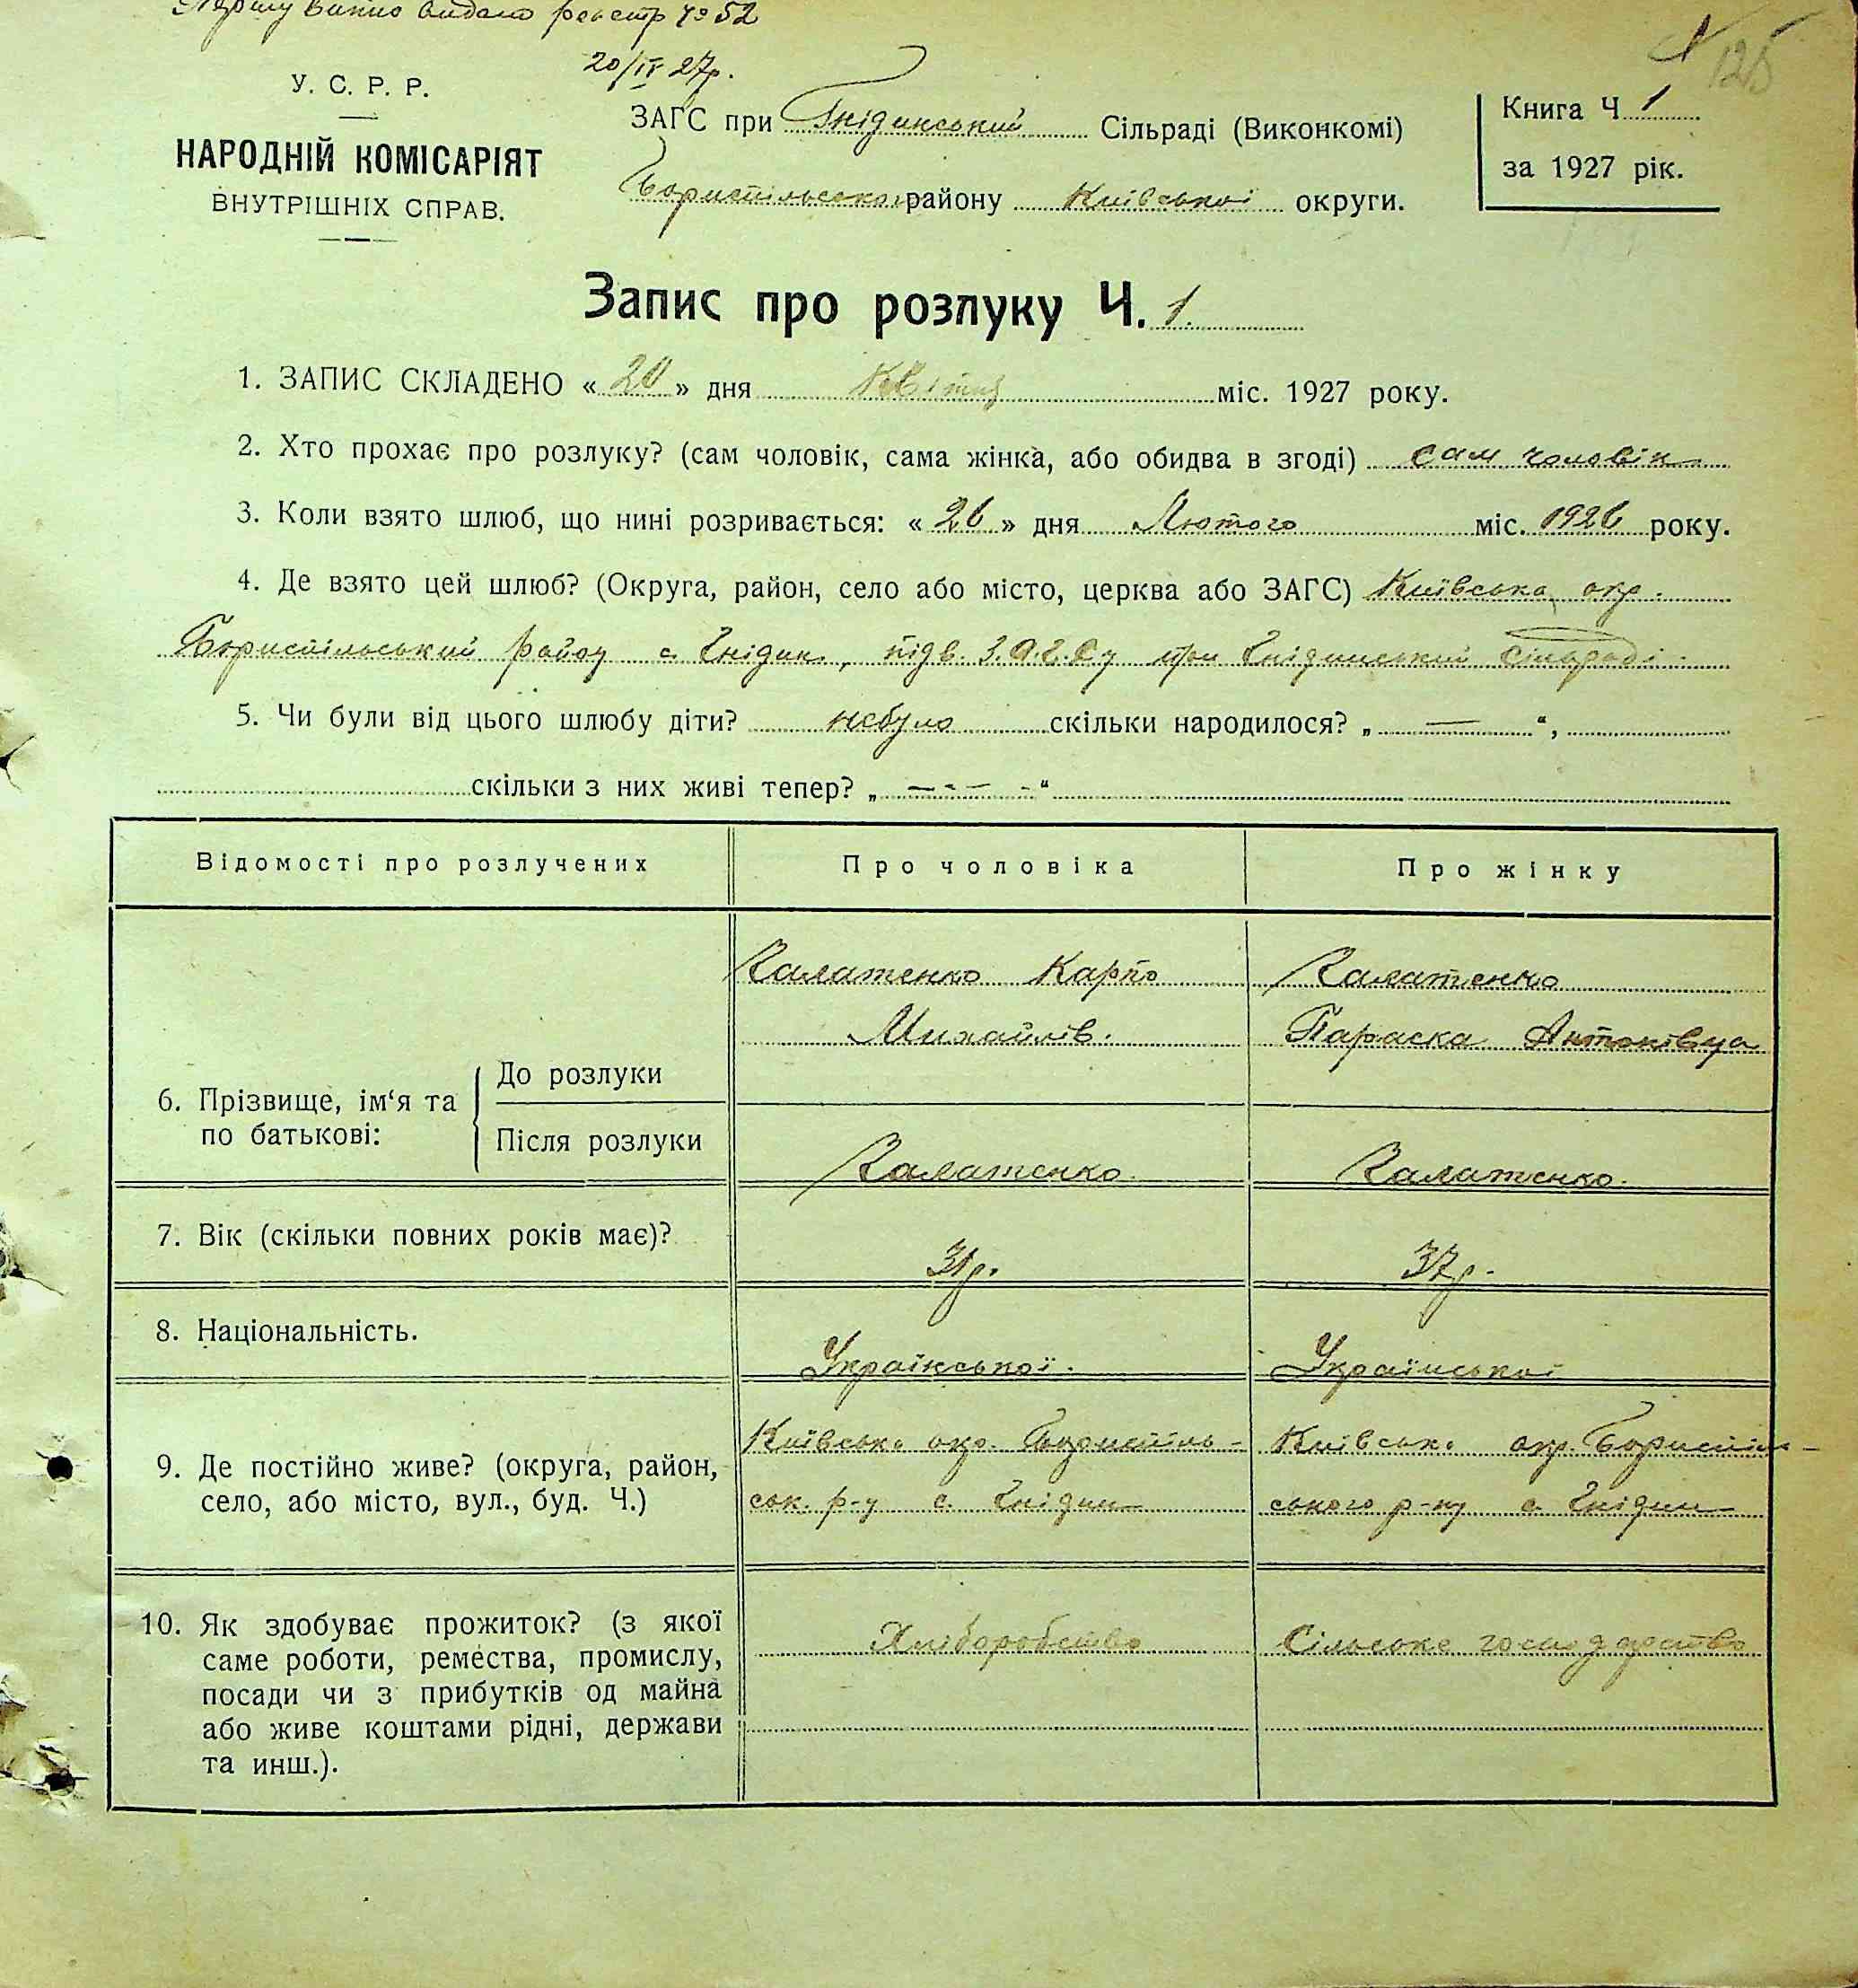 Першу випис видано реєстр № 52
20/IV 27р.
125
У. С. Р. Р.
НАРОДНІЙ КОМІСАРІЯТ
ВНУТРІШНІХ СПРАВ.
ЗАГС при Гнідинський Сільраді (Виконкомі)
району Київської округи.
Книга Ч 1
за 1927 рік.
Запис про розлуку Ч. 1.
1. ЗАПИС СКЛАДЕНО « 20 » дня міс. 1927 року.
2. Хто прохає про розлуку? (сам чоловік, сама жінка, або обидва в згоді) сам чоловік
3. Коли взято шлюб, що нині розривається: « 26 » дня Лютого міс. 1926 року.
4. Де взято цей шлюб? (Округа, район, село або місто, церква або ЗАГС) Київська окр.
Бориспільський району с. Гнідин, підв. З.А.Г.Су при Гнідинський сільраді
5. Чи були від цього шлюбу діти? небуло скільки народилося? „ — “,
скільки з них живі тепер? „ — - — - “
Відомості про розлучених
Про чоловіка
Про жінку
6. Прізвище, ім‘я та по батькові:
До розлуки
Після розлуки
Калатенко Карпо
Михайлів.
Калатенко
Параска Антонівна
Калатенко.
Калатенко.
7. Вік (скільки повних років має)?
31р.
37р.
8. Національність.
Української.
Української
9. Де постійно живе? (округа, район,
село, або місто, вул., буд. Ч.)
Київсько окр. Бориспіль-
ськ. р-у с. Гнідин
Київсько окр. Бориспіль-
ського р-ну с. Гнідин
10. Як здобуває прожиток? (з якої
саме роботи, ремества, промислу,
посади чи з прибутків од майна
або живе коштами рідні, держави
та инш.).
Хліборобство
Сільське господарство